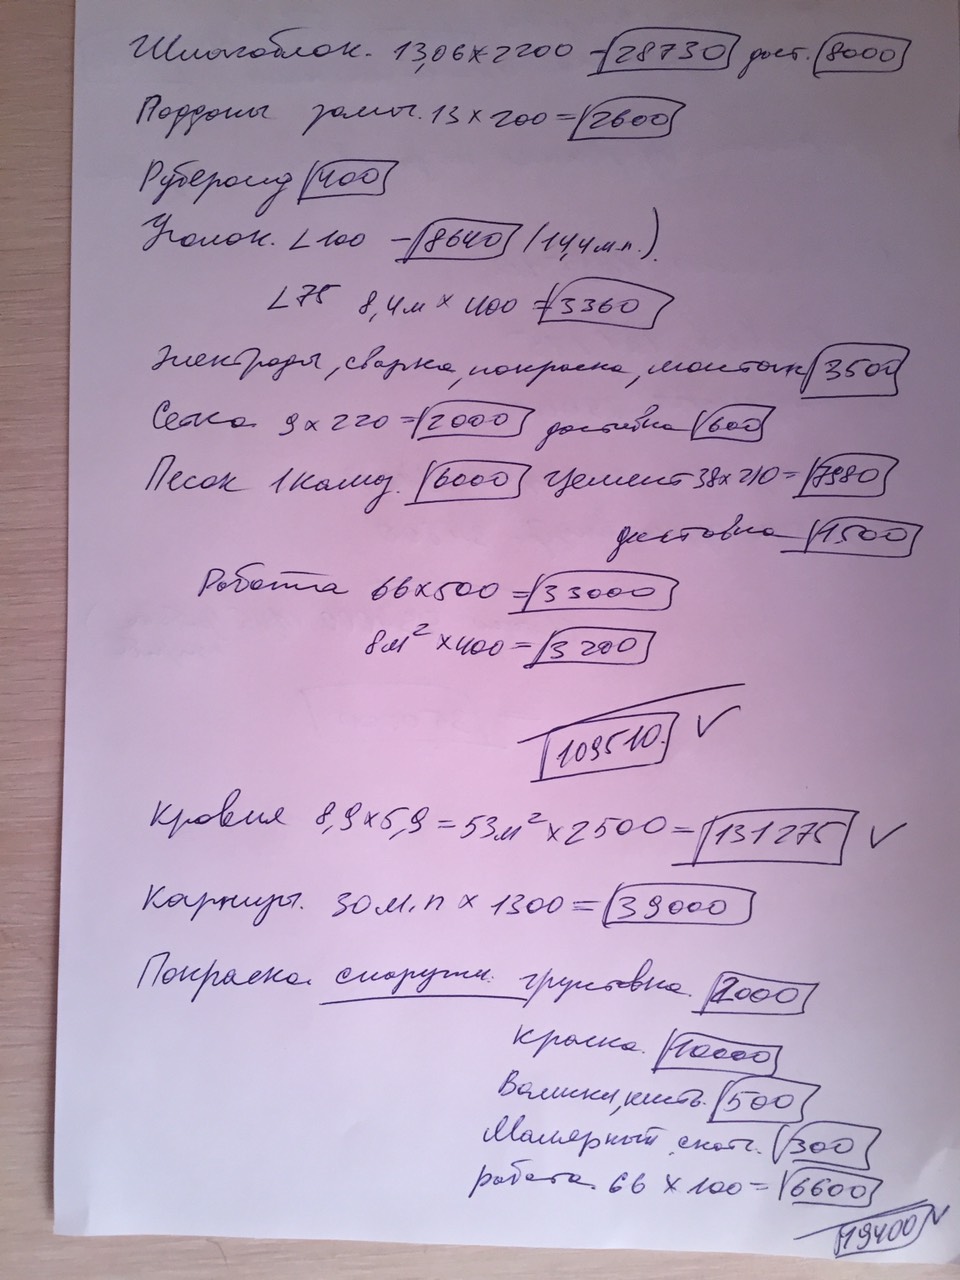 Шлакоблок. 13,06 х 2200 - 28730 дост. 8000
Поддоны 13 х 200 = 2600
Рубероид 400
Уголок. L100 - 8640 (14,4 м.п.)
L75 8,4м х 400 = 3360
Электроды, сварка, покраска, монтаж 3500
Сетка 9 х 220 = 2000 доставка 600
Песок 1 камаз. 6000 Цемент 38 х 210 = 7980
доставка 1500
Работа 66 х 500 = 33000
8м² х 400 = 3200
109510 ✓
Кровля 8,9 х 5,9 = 53м² х 2500 = 131275 ✓
Карнизы. 30 м.п х 1300 = 39000
Покраска снаружи: грунтовка. 2000
краска. 10000
Валики, кисть. 500
Малярный скотч. 300
работа 66 х 100 = 6600
19400 ✓